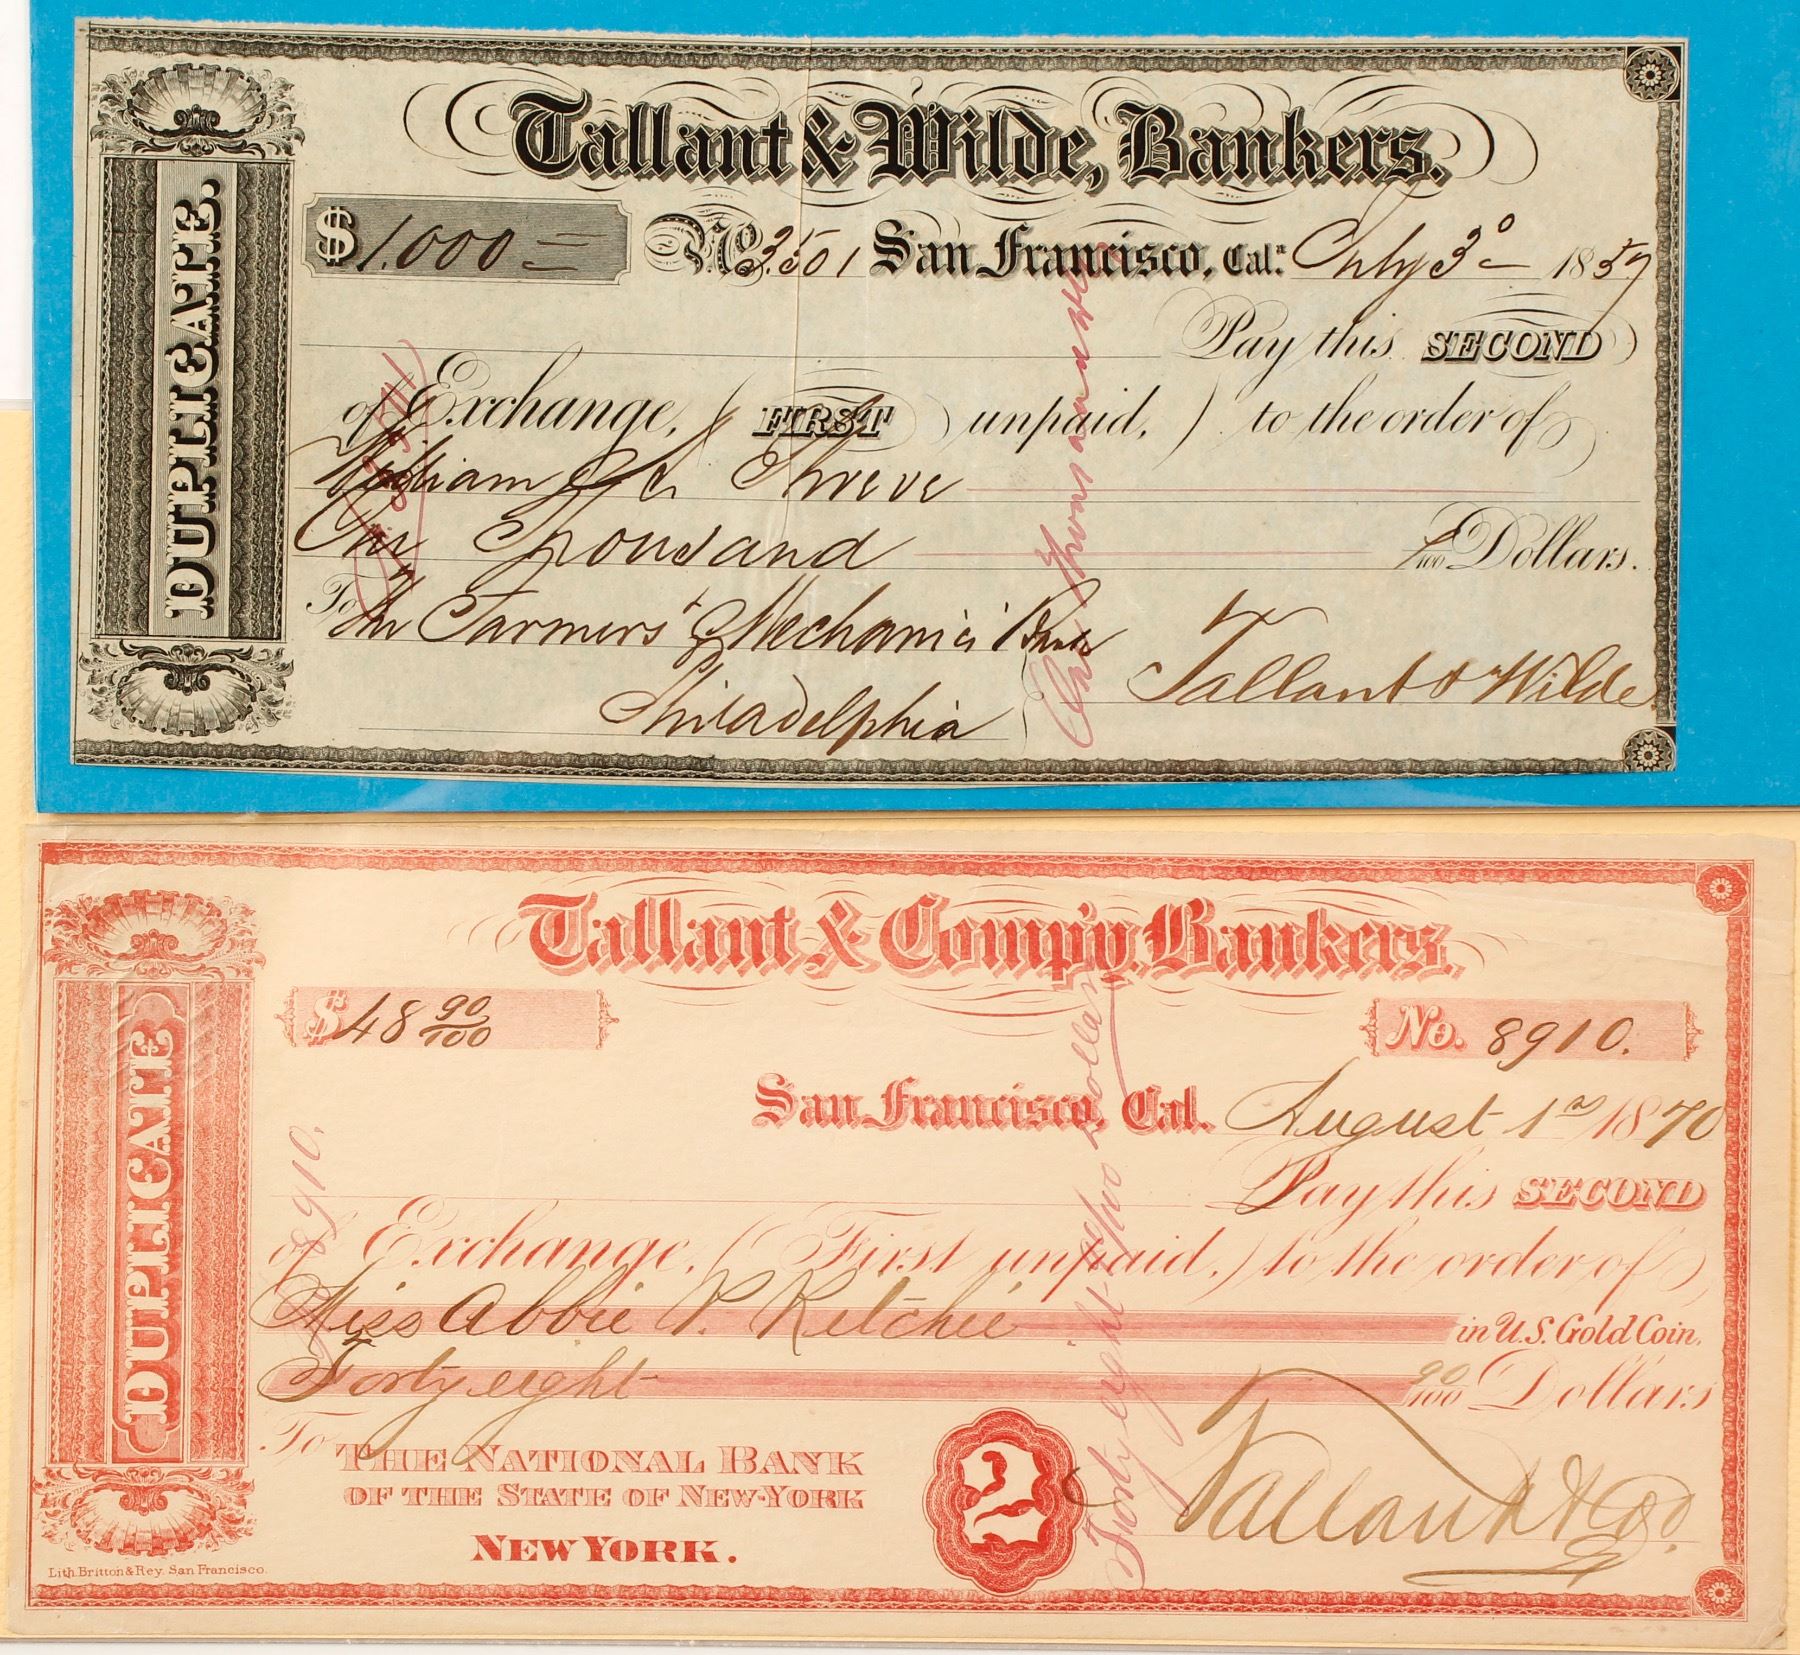 Tallant & Wilde, Bankers.
DUPLICATE.
$ 1.000 = No. 3.501 San Francisco, Cala. July 3d 1857
Pay this SECOND
of Exchange, ( FIRST ) unpaid, ) to the order of
William Shreve
One Thousand /100 Dollars.
To The Farmers & Mechanics Bank
Philadelphia
Tallant & Wilde
One Thousand
Tallant & Comp'y. Bankers.
DUPLICATE
$ 48 90/100 No. 8910.
San Francisco, Cal. August 1st 1870
Pay this SECOND
of Exchange, (First unpaid,) to the order of
Miss Abbie P. Ritchie in U.S. Gold Coin,
Forty eight 90/100 Dollars
To THE NATIONAL BANK
OF THE STATE OF NEW-YORK
NEW YORK.
2
Tallant & Co.
Lith. Britton & Rey. San Francisco.
8910.
Forty eight 90/100 Dollars